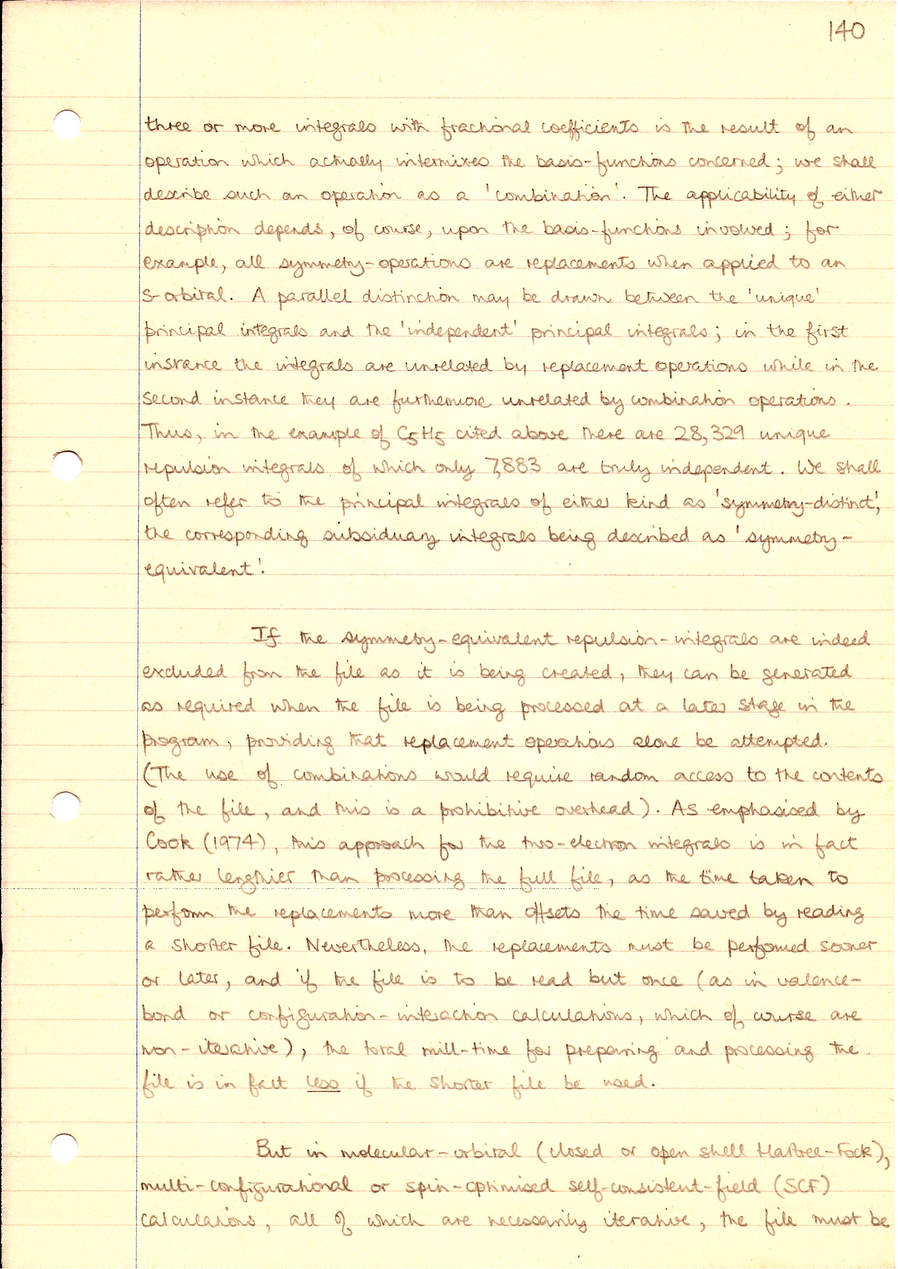 140
three or more integrals with fractional coefficients is the result of an
operation which actually intermixes the basis-functions concerned; we shall
describe such an operation as a 'combination'. The applicability of either
description depends, of course, upon the basis-functions involved; for
example, all symmetry-operations are replacements when applied to an
s-orbital. A parallel distinction may be drawn between the 'unique'
principal integrals and the 'independent' principal integrals; in the first
instance the integrals are unrelated by replacement operations while in the
second instance they are furthermore unrelated by combination operations.
Thus, in the example of C5H5 cited above there are 28,329 unique
repulsion integrals of which only 7,883 are truly independent. We shall
often refer to the principal integrals of either kind as 'symmetry-distinct',
the corresponding subsiduary integrals being described as 'symmetry-
equivalent'.
If the symmetry-equivalent repulsion-integrals are indeed
excluded from the file as it is being created, they can be generated
as required when the file is being processed at a later stage in the
program, providing that replacement operations alone be attempted.
(The use of combinations would require random access to the contents
of the file, and this is a prohibitive overhead). As emphasised by
Cook (1974), this approach for the two-electron integrals is in fact
rather lengthier than processing the full file, as the time taken to
perform the replacements more than offsets the time saved by reading
a shorter file. Nevertheless, the replacements must be performed sooner
or later, and if the file is to be read but once (as in valence-
bond or configuration-interaction calculations, which of course are
non-iterative), the total mill-time for preparing and processing the
file is in fact less if the shorter file be used.
But in molecular-orbital (closed or open shell Hartree-Fock),
multi-configurational or spin-optimised self-consistent-field (SCF)
calculations, all of which are necessarily iterative, the file must be